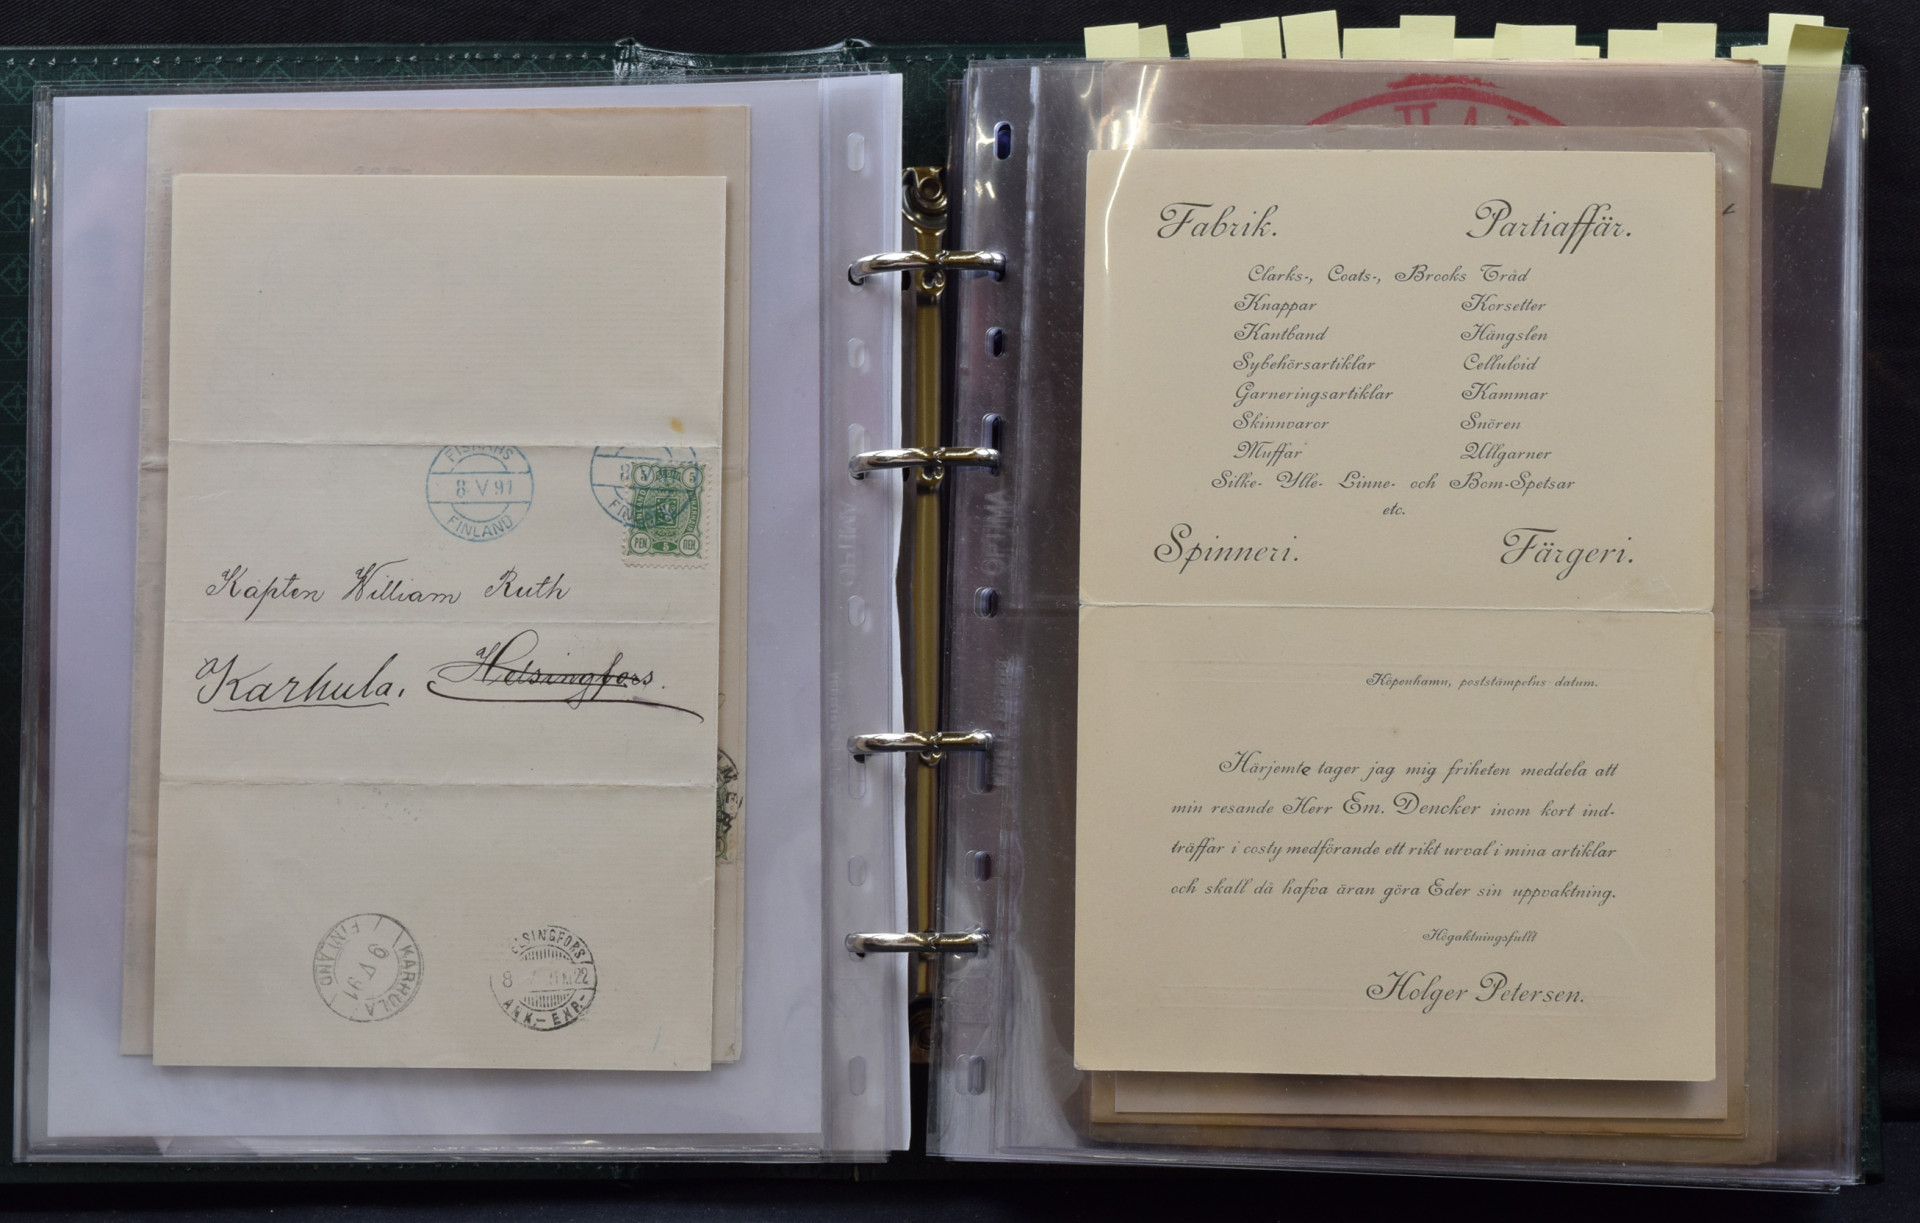 FISKARS
8.V.91
FINLAND
8.V
FIN
PEN 5 ПЕН
Kapten William Ruth
Karhula. Helsingfors.
KARHULA
9 V 91
FINLAND
ELSINGFORS
8 22
ANK.-EXP.
OPTIMA
OPTIMA
Fabrik. Partiaffär.
Clarks-, Coats-, Brooks Tråd
Knappar Korsetter
Kantband Hängslen
Sybehörsartiklar Celluloid
Garneringsartiklar Kammar
Skinnvaror Snören
Muffar Ullgarner
Silke- Ylle- Linne- och Bom-Spetsar
etc.
Spinneri. Färgeri.
Köpenhamn, poststämpelns datum.
Härjemte tager jag mig friheten meddela att
min resande Herr Em. Dencker inom kort ind-
träffar i costy medförande ett rikt urval i mina artiklar
och skall då hafva äran göra Eder sin uppvaktning.
Högaktningsfullt
Holger Petersen.